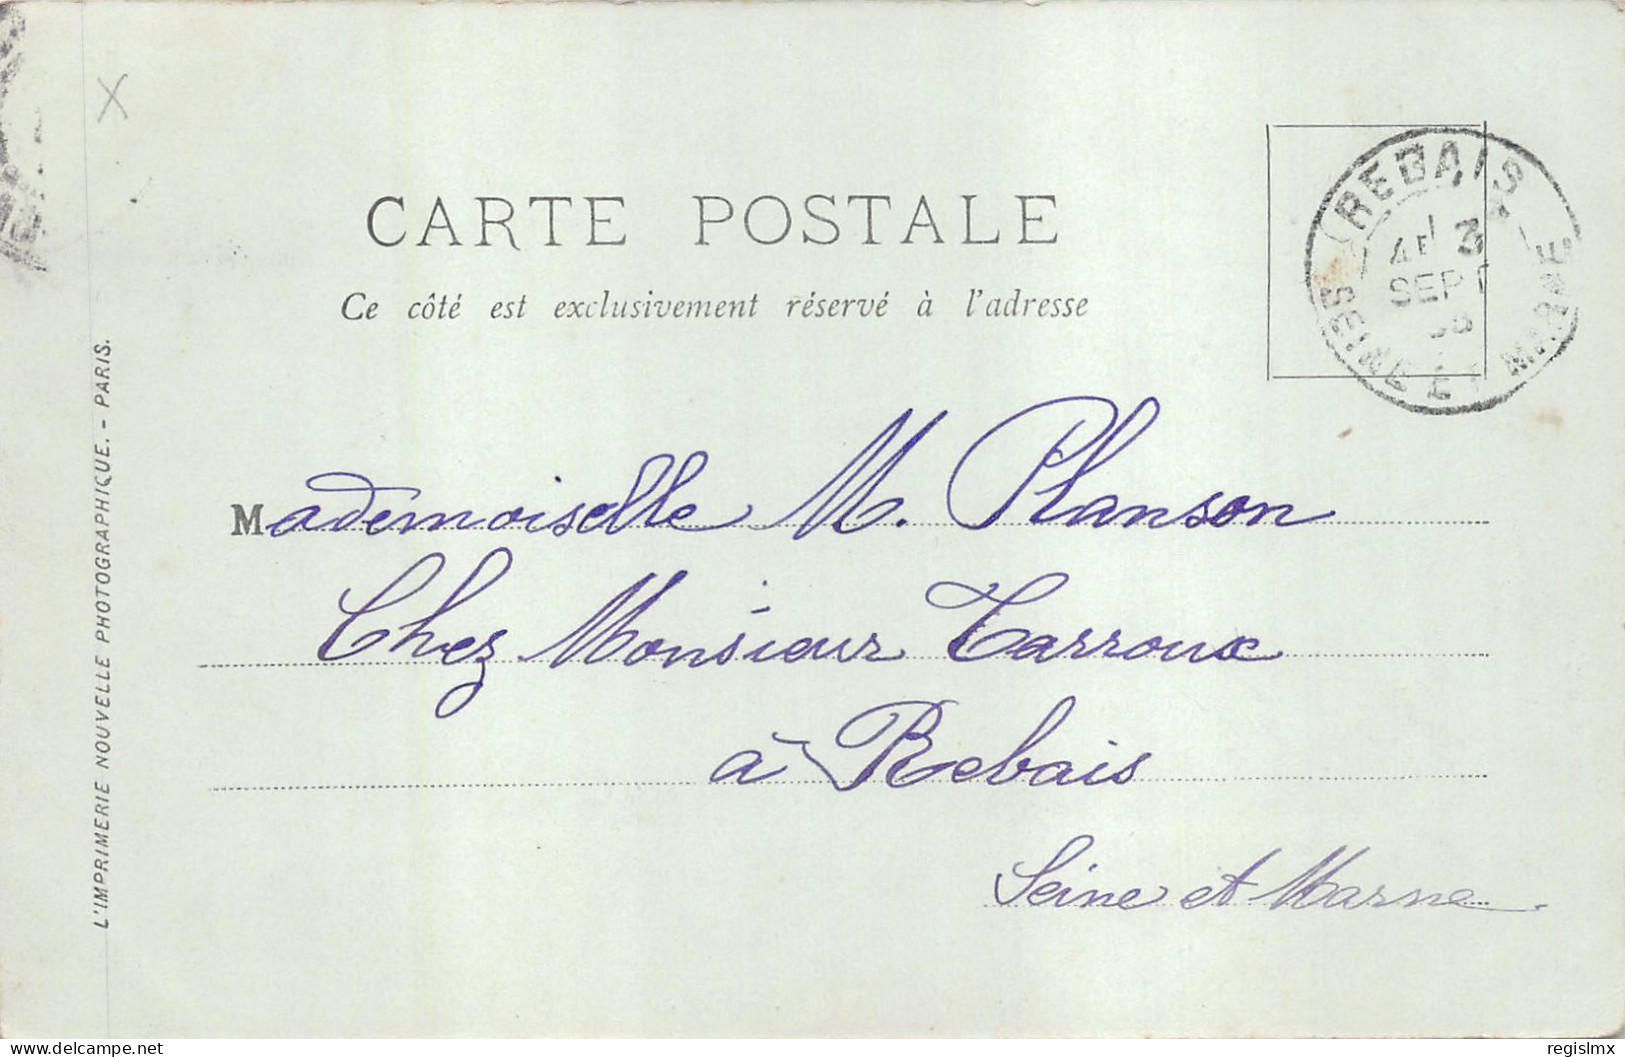 CARTE POSTALE
Ce côté est exclusivement réservé à l'adresse
REBAIS
3
SEPT
SEINE ET MARNE
Mademoiselle M. Planson
Chez Monsieur Tarroux
à Rebais
Seine et Marne.
L'IMPRIMERIE NOUVELLE PHOTOGRAPHIQUE. - PARIS.
delcampe.net
regislmx